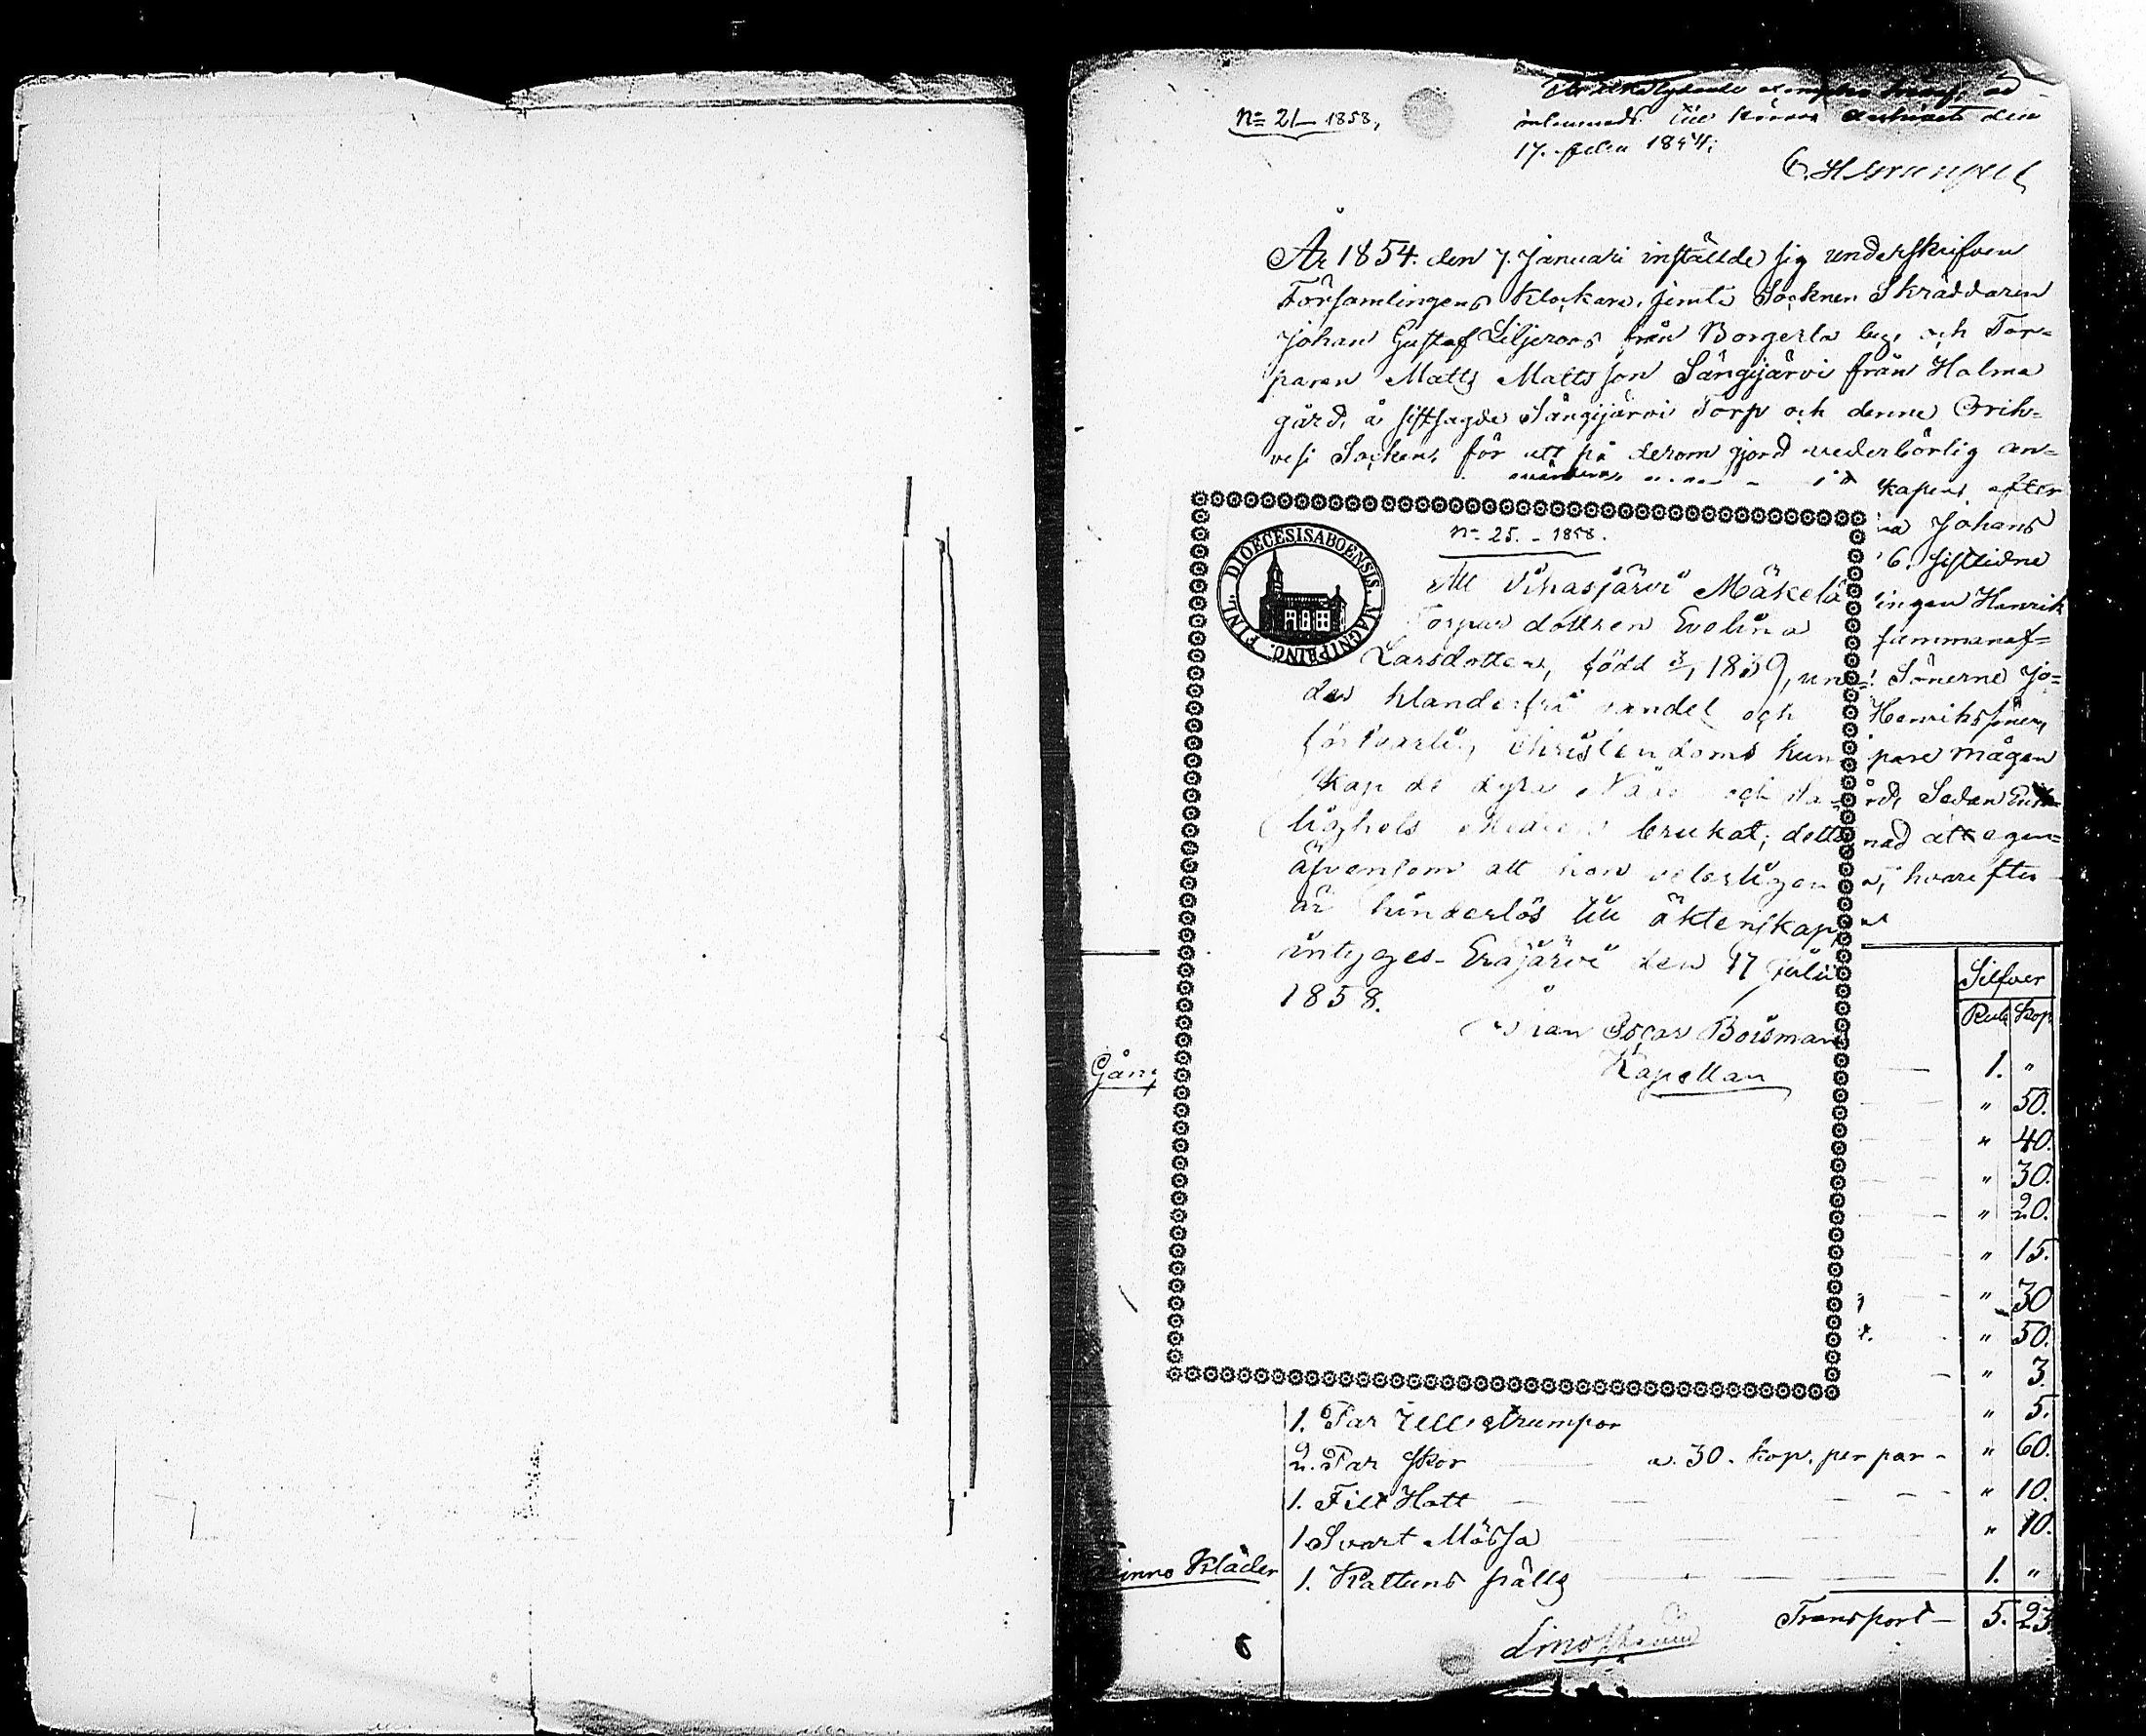 No 21 1858,
inlemnadt till den
17. 1854.
År 1854. den 7. Januari inställde sig underskrifven
Församlingens Klockare, jemte Socknen Skräddaren
Johan Gustaf Liljeroos från Borgerla by, och Tor=
paren Matts Mattsson Sängijärvi från Holma
gård, å sistsagde Sångijärvi Torp och denne Orih=
vesi Socken, för att på derom gjord vederbörlig an=
kapens efter
Johans
6. sistledne
ingen Henrik
sammanaf=
Sönerne Jo=
Henrikssöner,
pare mågen
Sedan
nad att egen=
hvarefter
No 25. - 1858.
DIOECESIS ABOENSIS. MAGNI PRINC. FINL.
Att Vihasjärvi Mäkelä
Torpar dottren Evelina
Larsdotter, född 3/1 1839, un=
der klanderfri vandel och
försvarlig Christendoms kun
skap de dyra Nåde och sa=
lighets medlen brukat; detta
äfvensom att hon veterligen
är hinderlös till äktenskap,
intyges. Eräjärvi den 17 Julii
1858.
Johan Oscar Boisman
Kapellan
Silfver
Rub Kop
Gång
1. "
" 50.
" 40.
" 30.
" 20.
" 15.
" 30
" 50.
" 3.
1. Par Ull strumpor " 5.
2. Par Skor a. 30. kop. per par - " 60.
1. Filt Hatt " 10.
1 Svart Mössa " 10.
Qvinno Kläder 1. Kattuns pälts 1. "
Transport 5. 23.